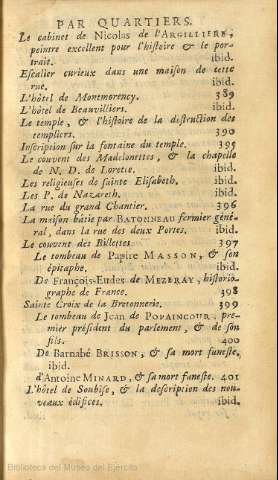 PAR QUARTIERS.
Le cabinet de Nicolas de l'ARGILLIERE,
peintre excellent pour l'histoire & le por-
trait. ibid.
Escalier curieux dans une maison de cette
rue. ibid.
L'hôtel de Montmorency. 389
L'hôtel de Beauvilliers. ibid.
Le temple, & l'histoire de la distruction des
templiers. 390
Inscription sur la fontaine du temple. 395
Le couvent des Madelonettes, & la chapelle
de N. D. de Lorette. ibid.
Les religieuses de sainte Elisabeth. ibid.
Les P. de Nazareth. ibid.
La rue du grand Chantier. 396
La maison bâtie par BATONNEAU fermier géné-
ral, dans la rue des deux Portes. ibid.
Le couvent des Billettes. 397
Le tombeau de Papire MASSON, & son
épitaphe. ibid.
De François-Eudes de MEZERAY, historio-
graphe de France. 398
Sainte Croix de la Bretonnerie. 399
Le tombeau de Jean de POPAINCOUR, pre-
mier président du parlement, & de son
fils. 400
De Barnabé BRISSON, & sa mort funeste.
ibid.
d'Antoine MINARD, & sa mort funeste. 401
L'hôtel de Soubise, & la description des nou-
veaux édifices. ibid.
Biblioteca del Museo del Ejército